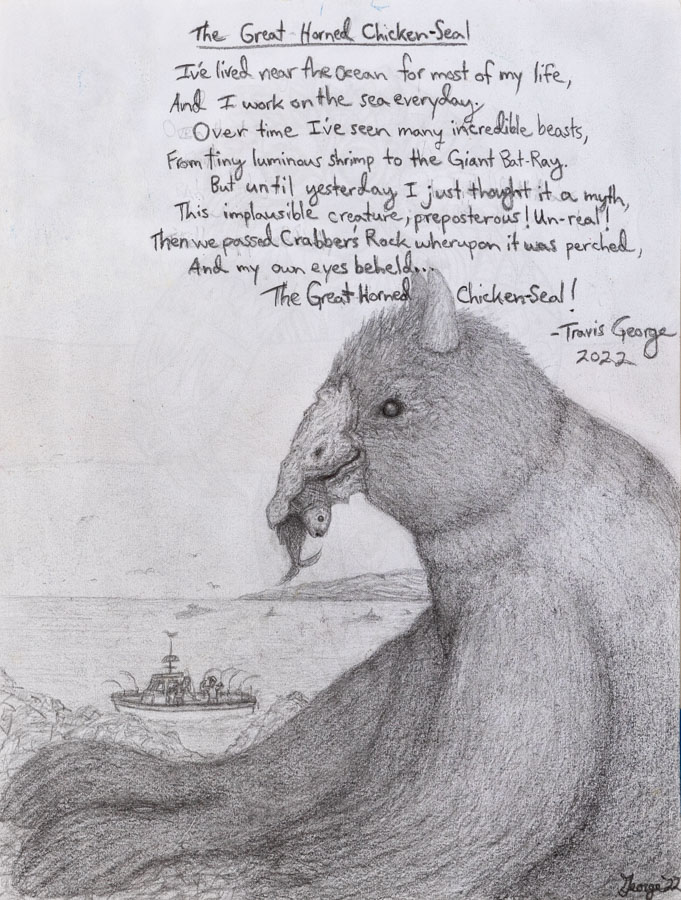 The Great Horned Chicken-Seal
I've lived near the ocean for most of my life,
And I work on the sea everyday.
Over time I've seen many incredible beasts,
From tiny luminous shrimp to the Giant Bat-Ray.
But until yesterday I just thought it a myth,
This implausible creature, preposterous! Un-real!
Then we passed Crabber's Rock wherupon it was perched,
And my own eyes beheld...
The Great Horned Chicken-Seal!
-Travis George
2022
George 22